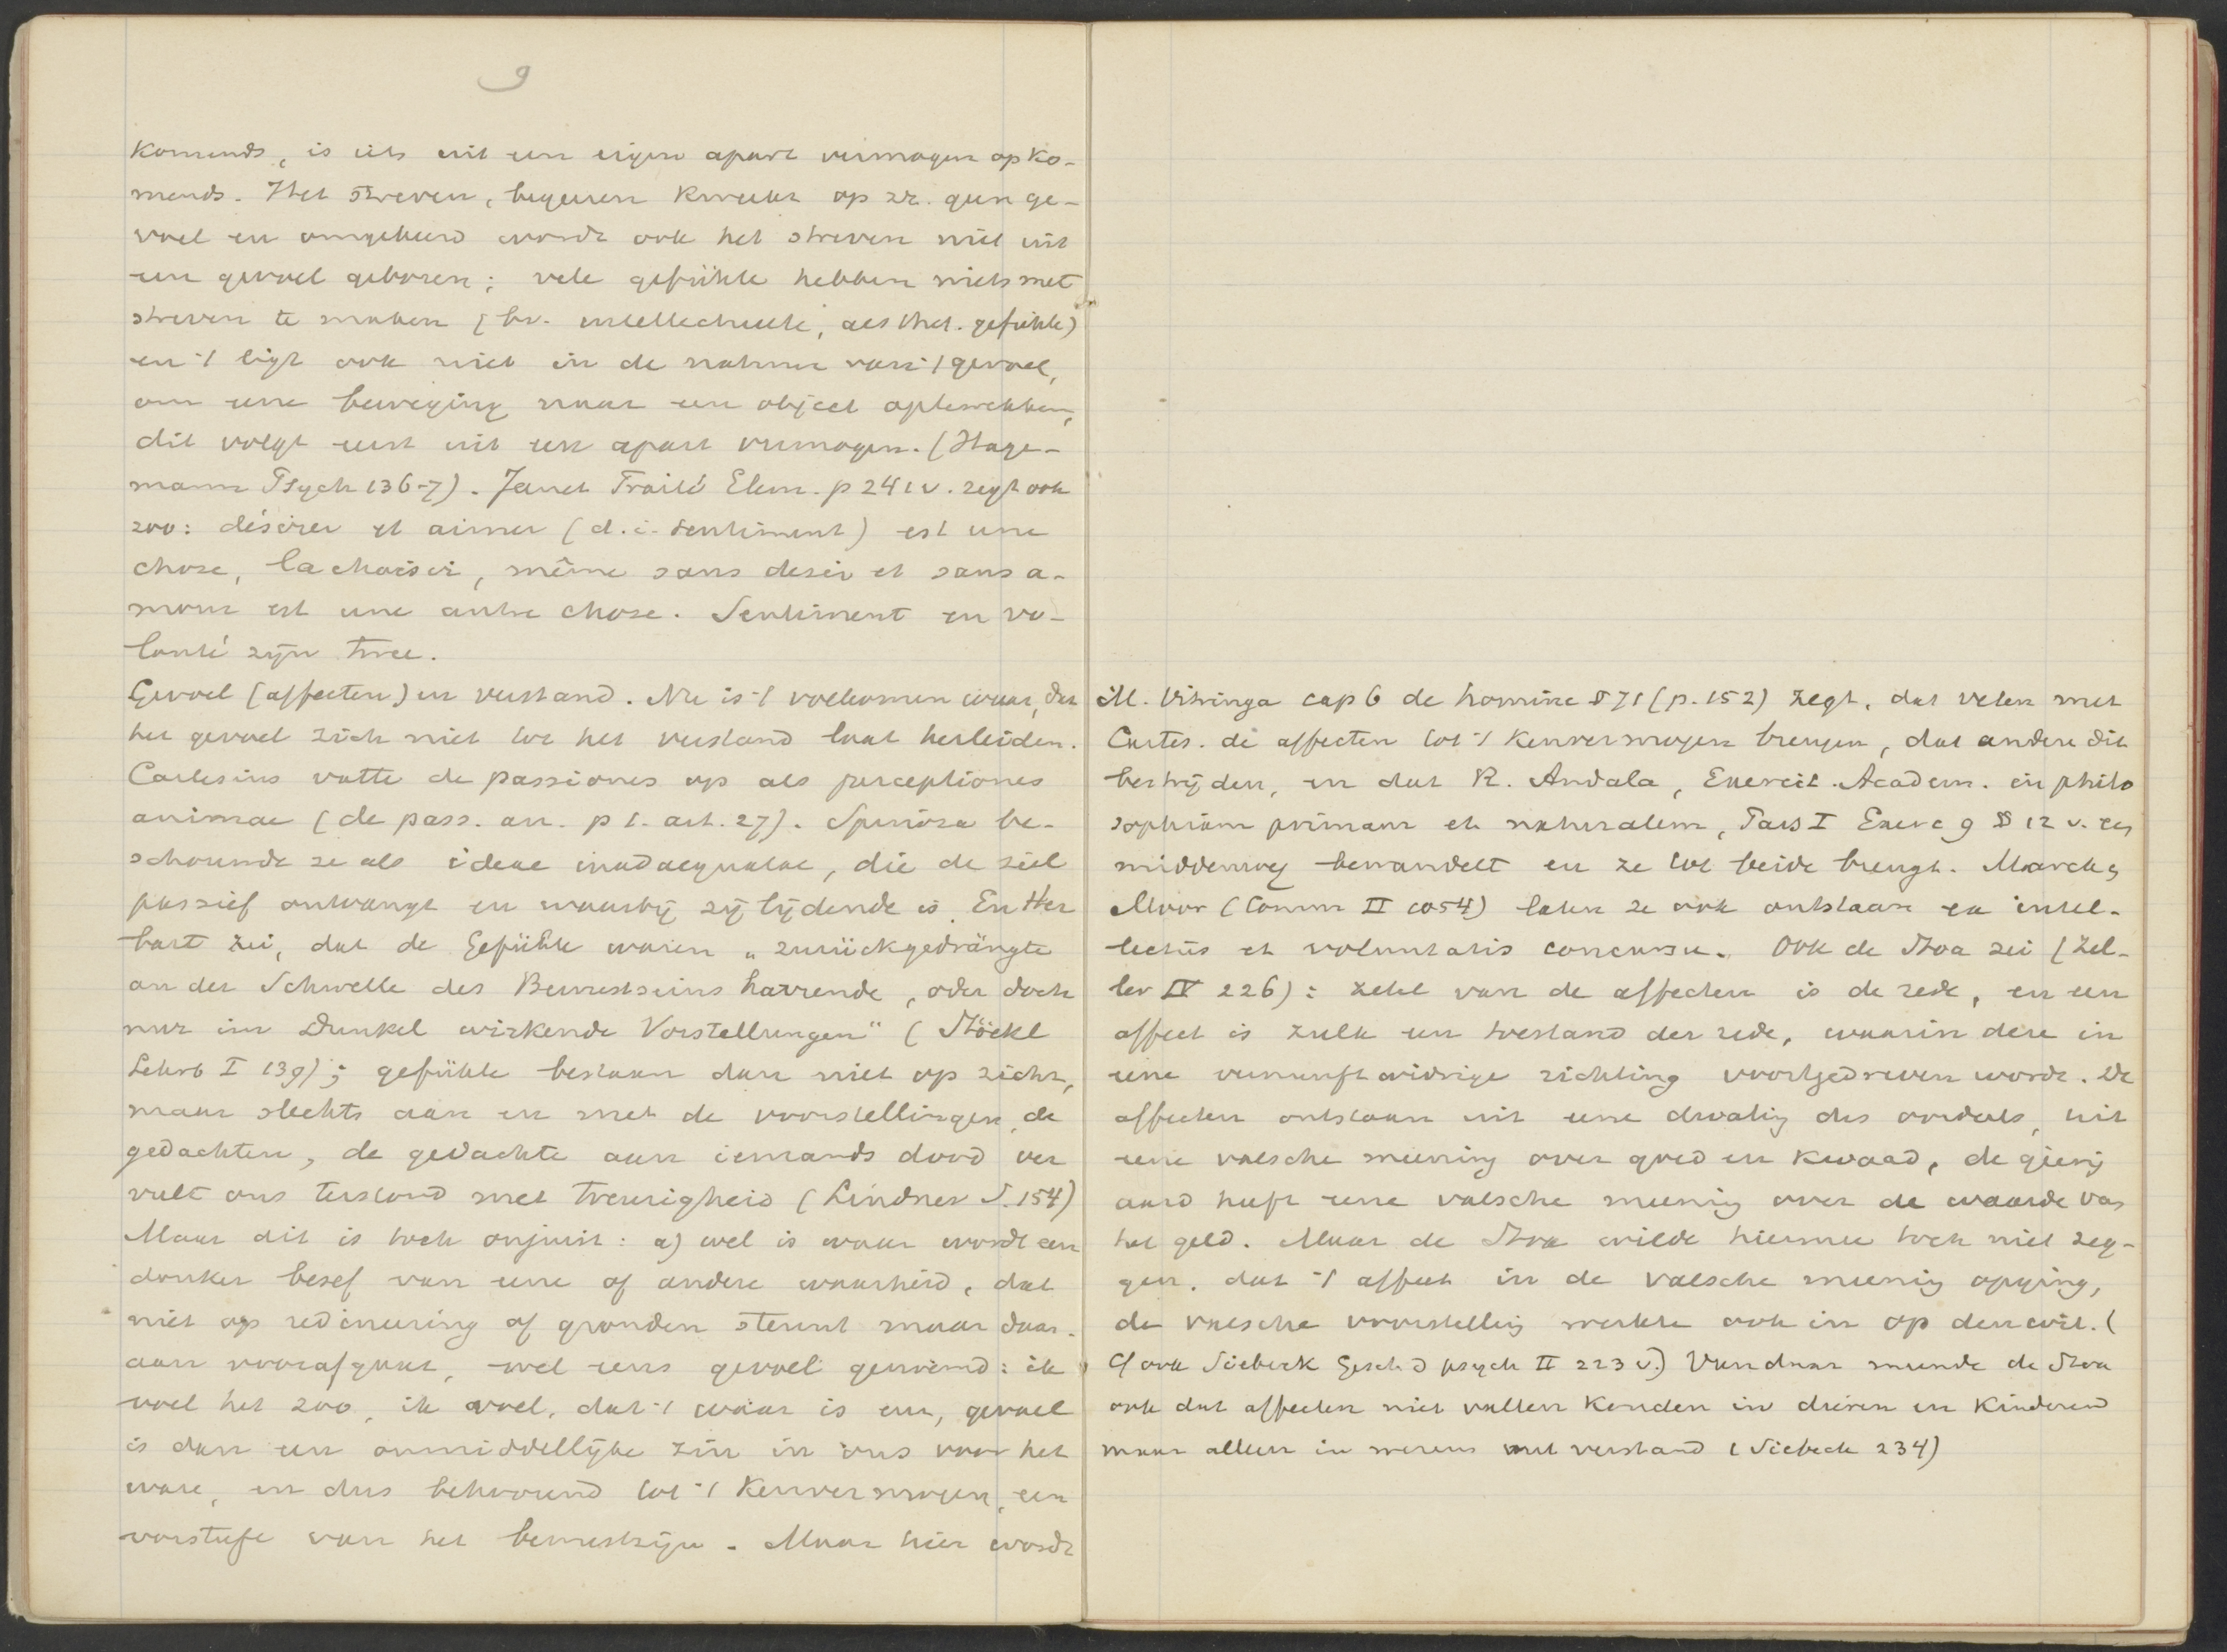 9
komends, is iets uit een eigen apart vermogen opko-
mends. Het streven, begeeren kweekt op zr. geen ge-
voel en omgekeerd wordt ook het streven niet uit
een gevoel geboren; vele gefühle hebben niets met
streven te maken (bv. intellectueele, aesthet. gefühle)
en 't ligt ook niet in de natuur van 't gevoel,
om eene beweging naar een object optewekken,
dit volgt eerst uit een apart vermogen. (Hage-
mann Psych 136-7). Janet Traité Elem. p 241 v. zegt ook
zoo: désirer et aimer (d.i. sentiment) est une
chose, la choisir, même sans desir et sans a-
mour est une autre chose. Sentiment en vo-
lonté zijn twee.
Gevoel (affecten) en verstand. Nu is 't volkomen waar, dat
het gevoel zich niet tot het verstand laat herleiden.
Cartesius vatte de passiones op als perceptiones
animae (de pass. an. p 1. art. 27). Spinoza be-
schouwde ze als ideae inadaequatae, die de ziel
passief ontvangt en waarbij zij lijdende is. En Her
bart zei, dat de Gefühle waren „zurückgedrängte
an der Schwelle des Bewustseins harrende, oder doch
nur im Dunkel wirkende Vorstellungen" (Stöckl
Lehrb I 139); gefühle bestaan dan niet op zichz,
maar slechts aan en met de voorstellingen, de
gedachten, de gedachte aan iemands dood ver
vult ons terstond met treurigheid (Lindner S. 154)
Maar dit is toch onjuist: a) wel is waar wordt een
donker besef van eene of andere waarheid, dat
niet op redeneering of gronden steunt maar daar-
aan voorafgaat, wel eens gevoel genoemd: ik
voel het zoo, ik voel, dat 't waar is enz, gevoel
is dan een onmiddellijke zin in ons voor het
ware, en dus behoorend tot 't kenvermogen, een
vorstufe van het bewustzijn. Maar hier wordt
M. Vitringa cap 6 de homine § 71 (p. 152) zegt, dat velen met
Cartes. de affecten tot 't kenvermogen brengen, dat andere dit
bestrijden, en dat R. Andala, Exercit. Academ. in philo
sophiam primam et naturalem, Pars I Exerc 9 § 12 v. een
middenweg bewandelt en ze tot beide brengt. Marck,
Moor (Comm II 1054) laten ze ook ontstaan ex intel-
lectus et voluntatis concursu. Ook de Stoa zei (Zel-
ler IV 226): zetel van de affecten is de rede, en een
affect is zulk een toestand der rede, waarin deze in
eene vernunftwidrige richting voortgedreven wordt. De
affecten ontstaan uit eene dwaling des oordeels, uit
eene valsche meening over goed en kwaad, de gierig
aard heeft eene valsche meening over de waarde van
het geld. Maar de Stoa wilde hiermee toch niet zeg-
gen, dat 't affect in de valsche meening opging,
de valsche voorstelling werkte ook in op den wil. (
Cf ook Siebeck Gesch d psych II 223 v.) Vandaar meende de Stoa
ook dat affecten niet vallen konden in dieren en kinderen
maar alleen in wezens met verstand (Siebeck 234)